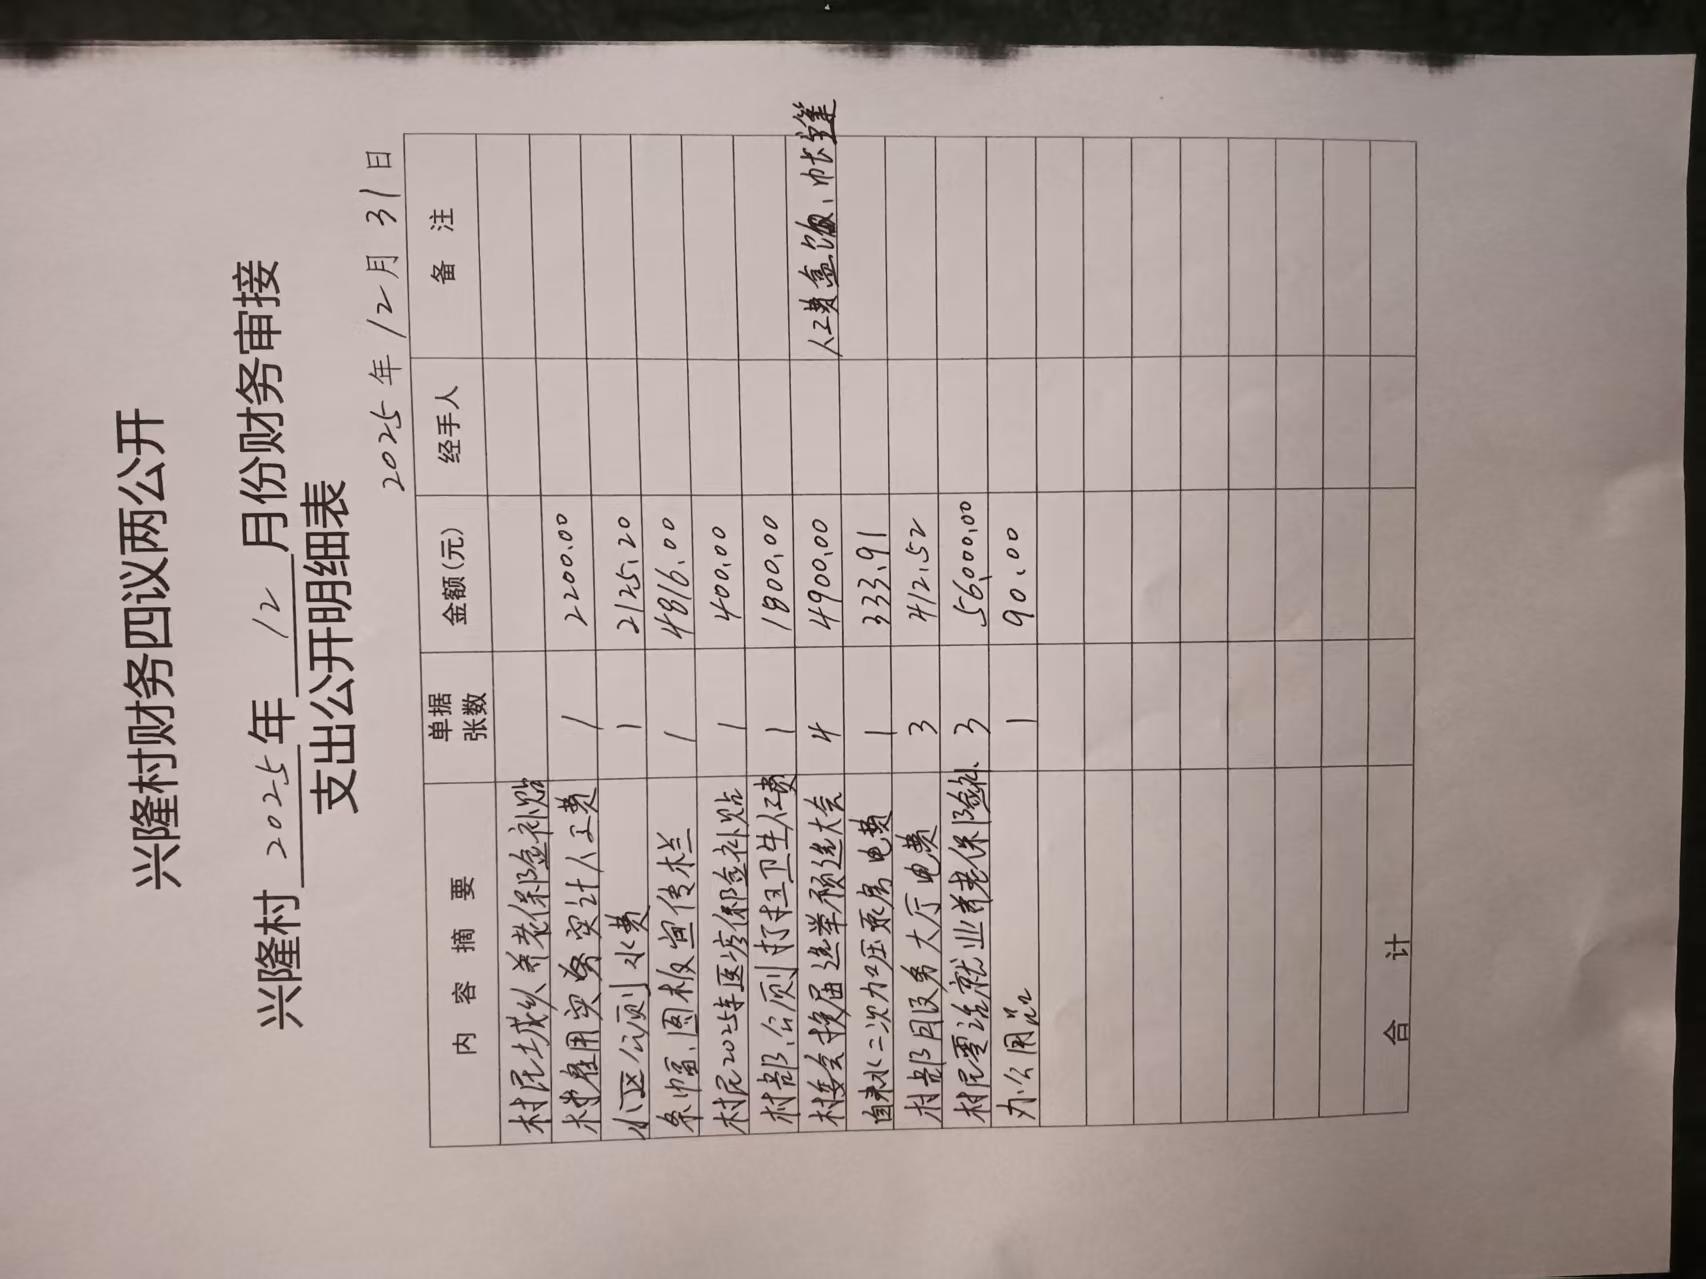 兴隆村财务四议两公开
兴隆村 2025 年 12 月份财务审接
支出公开明细表
2025 年 12 月 31 日
内 容 摘 要 单据张数 金额(元) 经手人 备 注
村民城乡养老保险补贴
村雇用实务实计人工费 1 2200.00
小区公厕水费 1 2125.20
条幅、图板宣传栏 1 4816.00
村民2025年医疗保险补贴 1 400.00
村部、公厕打扫卫生人工费 1 1800.00
村委会换届选举预选大会 4 4900.00 人工费盒饭、帐篷
自来水二次加压泵房电费 1 333.91
村部服务大厅电费 3 412.52
村民灵活就业养老保险补 3 56000.00
办公用品 1 90.00
合 计